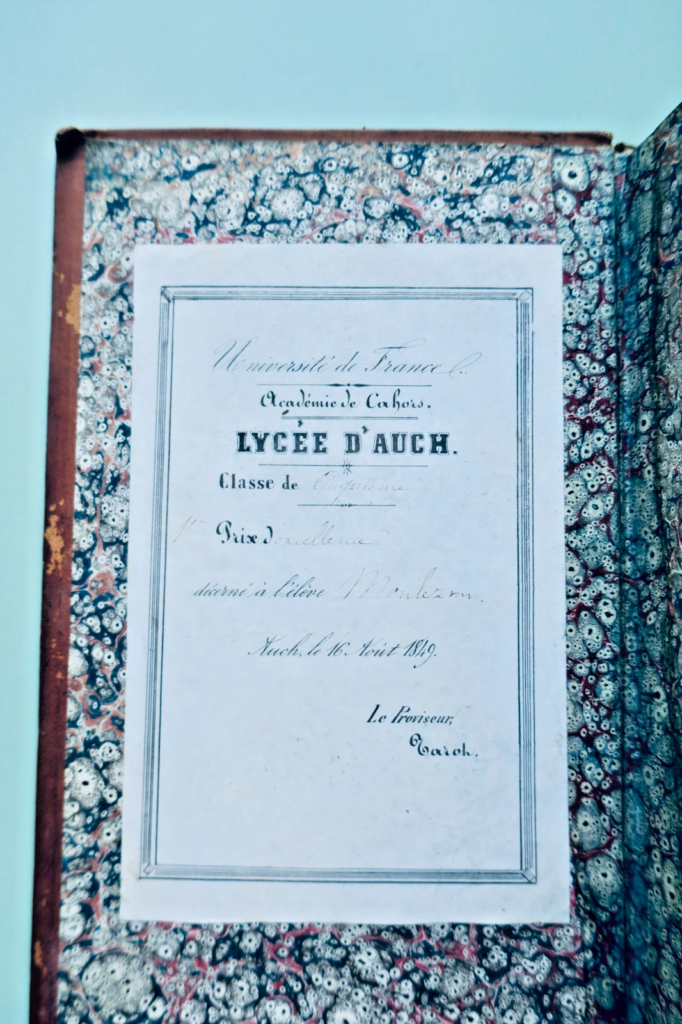 Université de France.
Académie de Cahors.
LYCÉE D'AUCH.
Classe de Cinquième
1er Prix d'excellence
décerné à l'élève Monlezun.
Auch, le 16 Août 1849.
Le Proviseur,